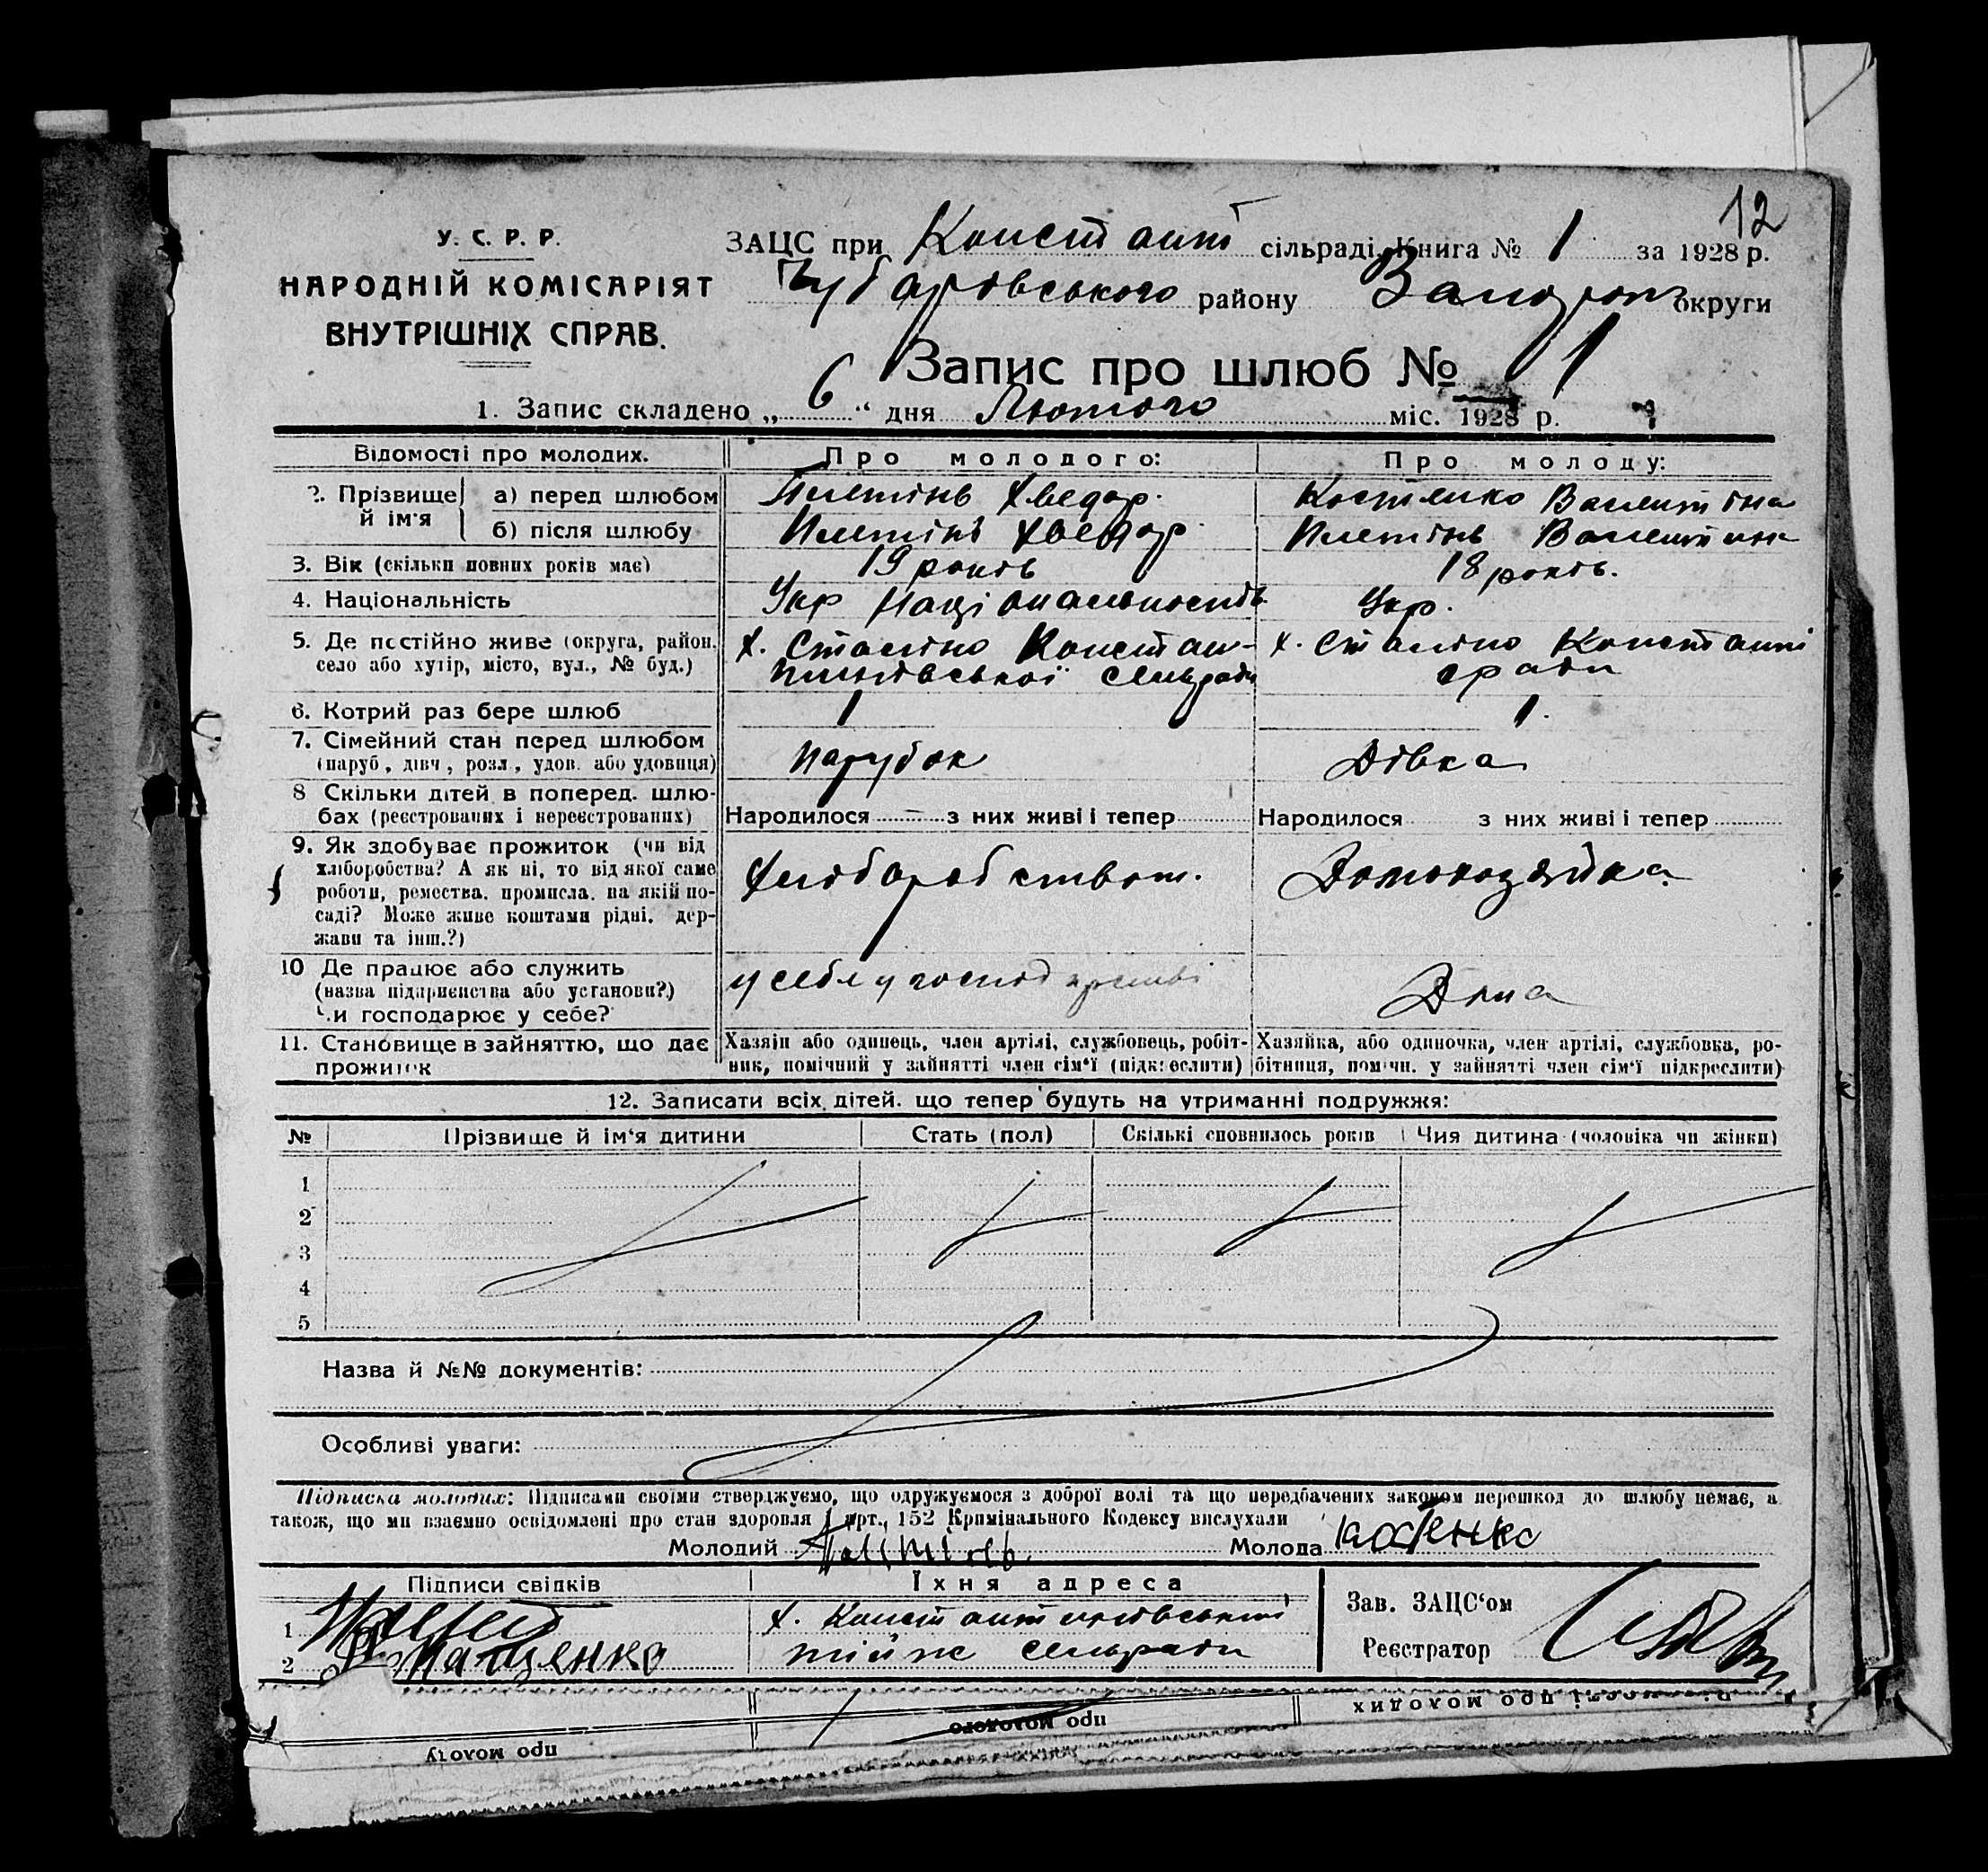 12
У. С. Р. Р.
НАРОДНІЙ КОМІСАРІЯТ
ВНУТРІШНІХ СПРАВ.
ЗАЦС при Констант сільраді, Книга № 1 за 1928 р.
Чубарівського району Запоріж округи
Запис про шлюб № 1
1. Запис складено „ 6 “ дня Лютого міс. 1928 р.
Відомості про молодих. Про молодого: Про молоду:
2. Прізвище й ім'я а) перед шлюбом Хведор. Костенко Валентіна
б) після шлюбу Хведор Валентина
3. Вік (скільки повних років має) 19 років 18 років.
4. Національність Укр Національность Укр.
5. Де постійно живе (округа, район, х. Сталіно Констан- х. Сталіно Констант
село або хутір, місто, вул., № буд.) тинівської сельради сради
6. Котрий раз бере шлюб 1 1.
7. Сімейний стан перед шлюбом
(паруб., дівч., розл., удов. або удовиця) парубок Дівка
8 Скільки дітей в поперед. шлю-
бах (реєстрованих і нереєстрованих) Народилося з них живі і тепер Народилося з них живі і тепер
9. Як здобуває прожиток (чи від
хліборобства? А як ні, то від якої саме Хліборобством. Домохазяйка
роботи, ремества, промисла, на якій по-
саді? Може живе коштами рідні, дер-
жави та інш.?)
10 Де працює або служить у себе у господарстві Дома
(назва підприєнства або установи?)
Чи господарює у себе?
11. Становище в зайняттю, що дає Хазяін або одинець, член артілі, службовець, робіт- Хазяйка, або одиночка, член артілі, службовка, ро-
прожиток ник, помічний у зайнятті член сім'ї (підкреслити) бітниця, помічн. у зайнятті член сім'ї підкреслити)
12. Записати всіх дітей, що тепер будуть на утриманні подружжя:
№ Прізвище й ім'я дитини Стать (пол) Скількі сповнилось років Чия дитина (чоловіка чи жінки)
1
2
3
4
5
Назва й №№ документів:
Особливі уваги:
Підписка молодих: Підписами своїми стверджуємо, що одружуємося з доброї волі та що передбачених законом перешкод до шлюбу немає, а
також, що ми взаємно освідомлені про стан здоровля і арт. 152 Крімінального Кодексу вислухали
Молодий Молода Костенко
Підписи свідків Їхня адреса
1 х. Константинівський
2 тій же сельради
Зав. ЗАЦС'ом
Реєстратор
Відомості про молодих
про молодого
про молоду